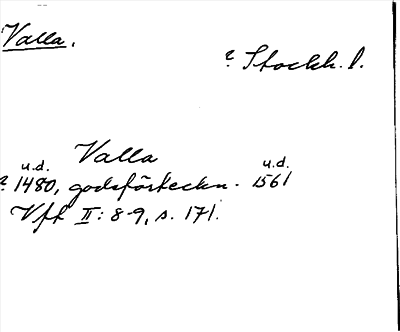 Valla.
? Stockh. l.
Valla
u.d. u.d.
? 1480, godsförteckn. 1561
Vft II: 8-9, s. 171.